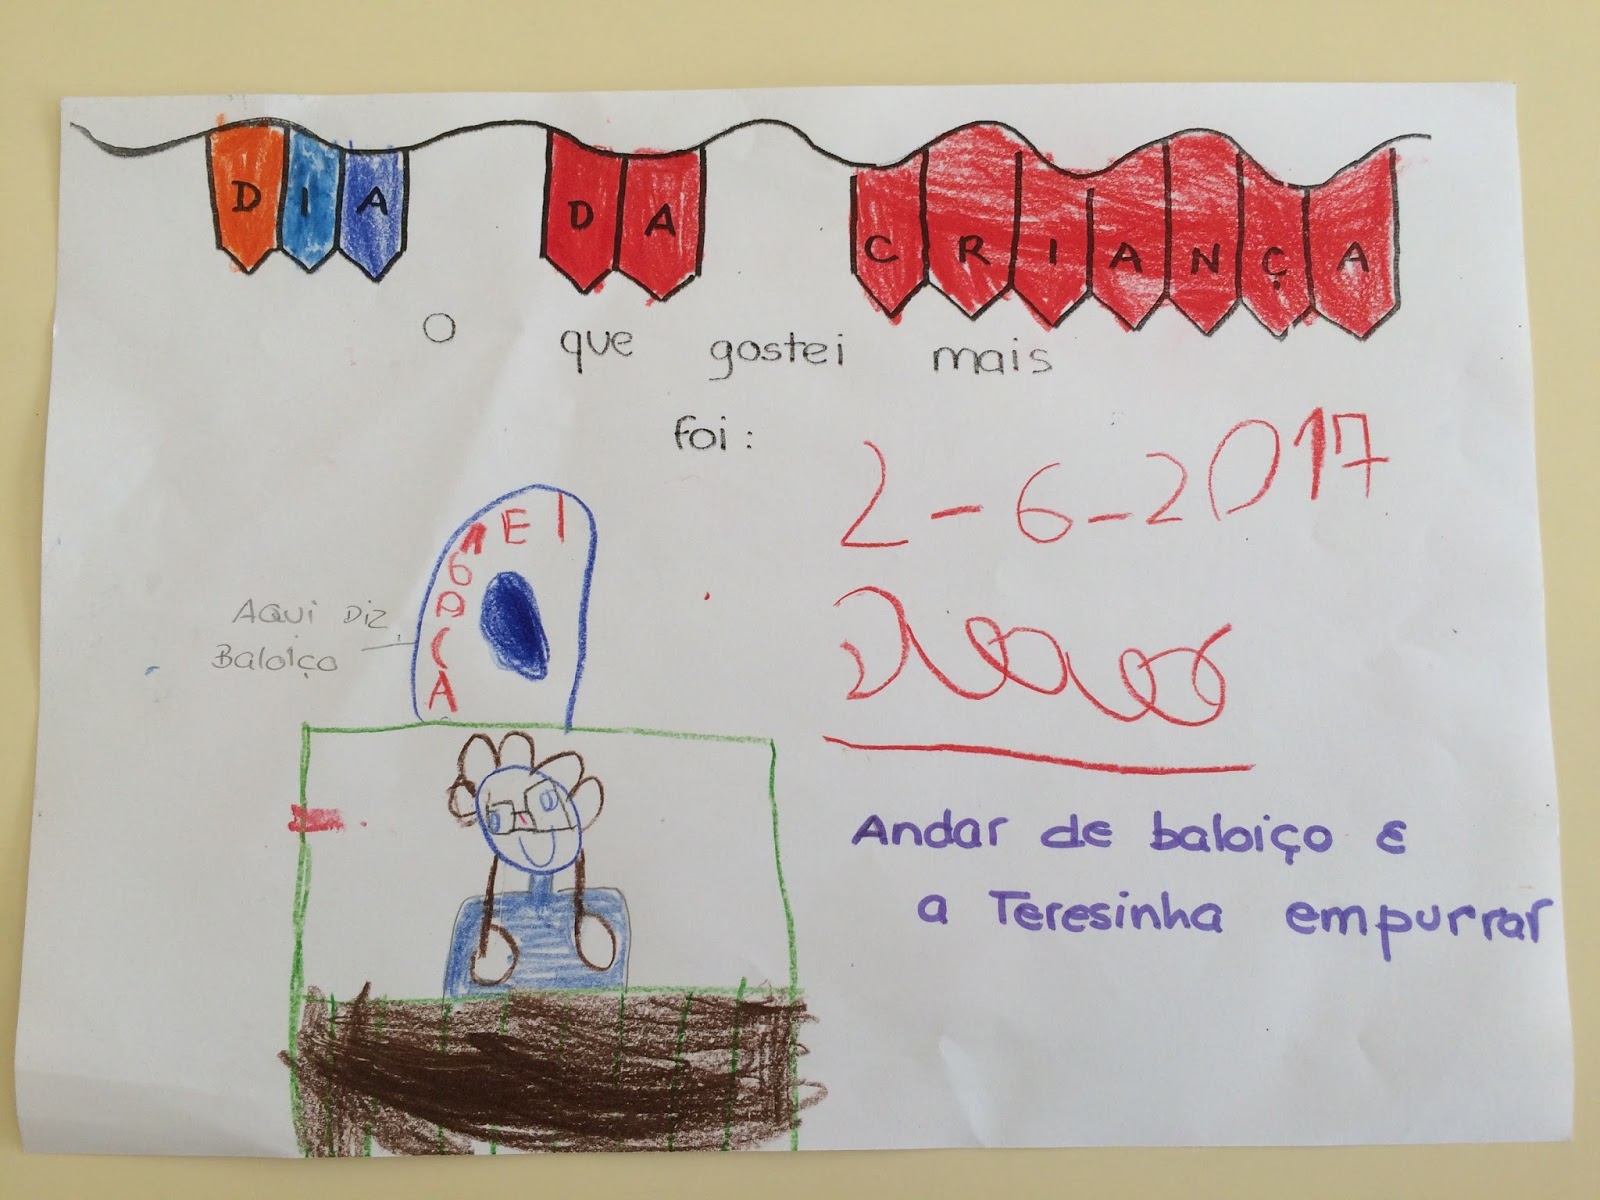 DIA DA CRIANÇA
O que gostei mais
foi:
2-6-2017
AQUI DIZ
BALOIÇO
Andar de baloiço e
a Teresinha empurrar